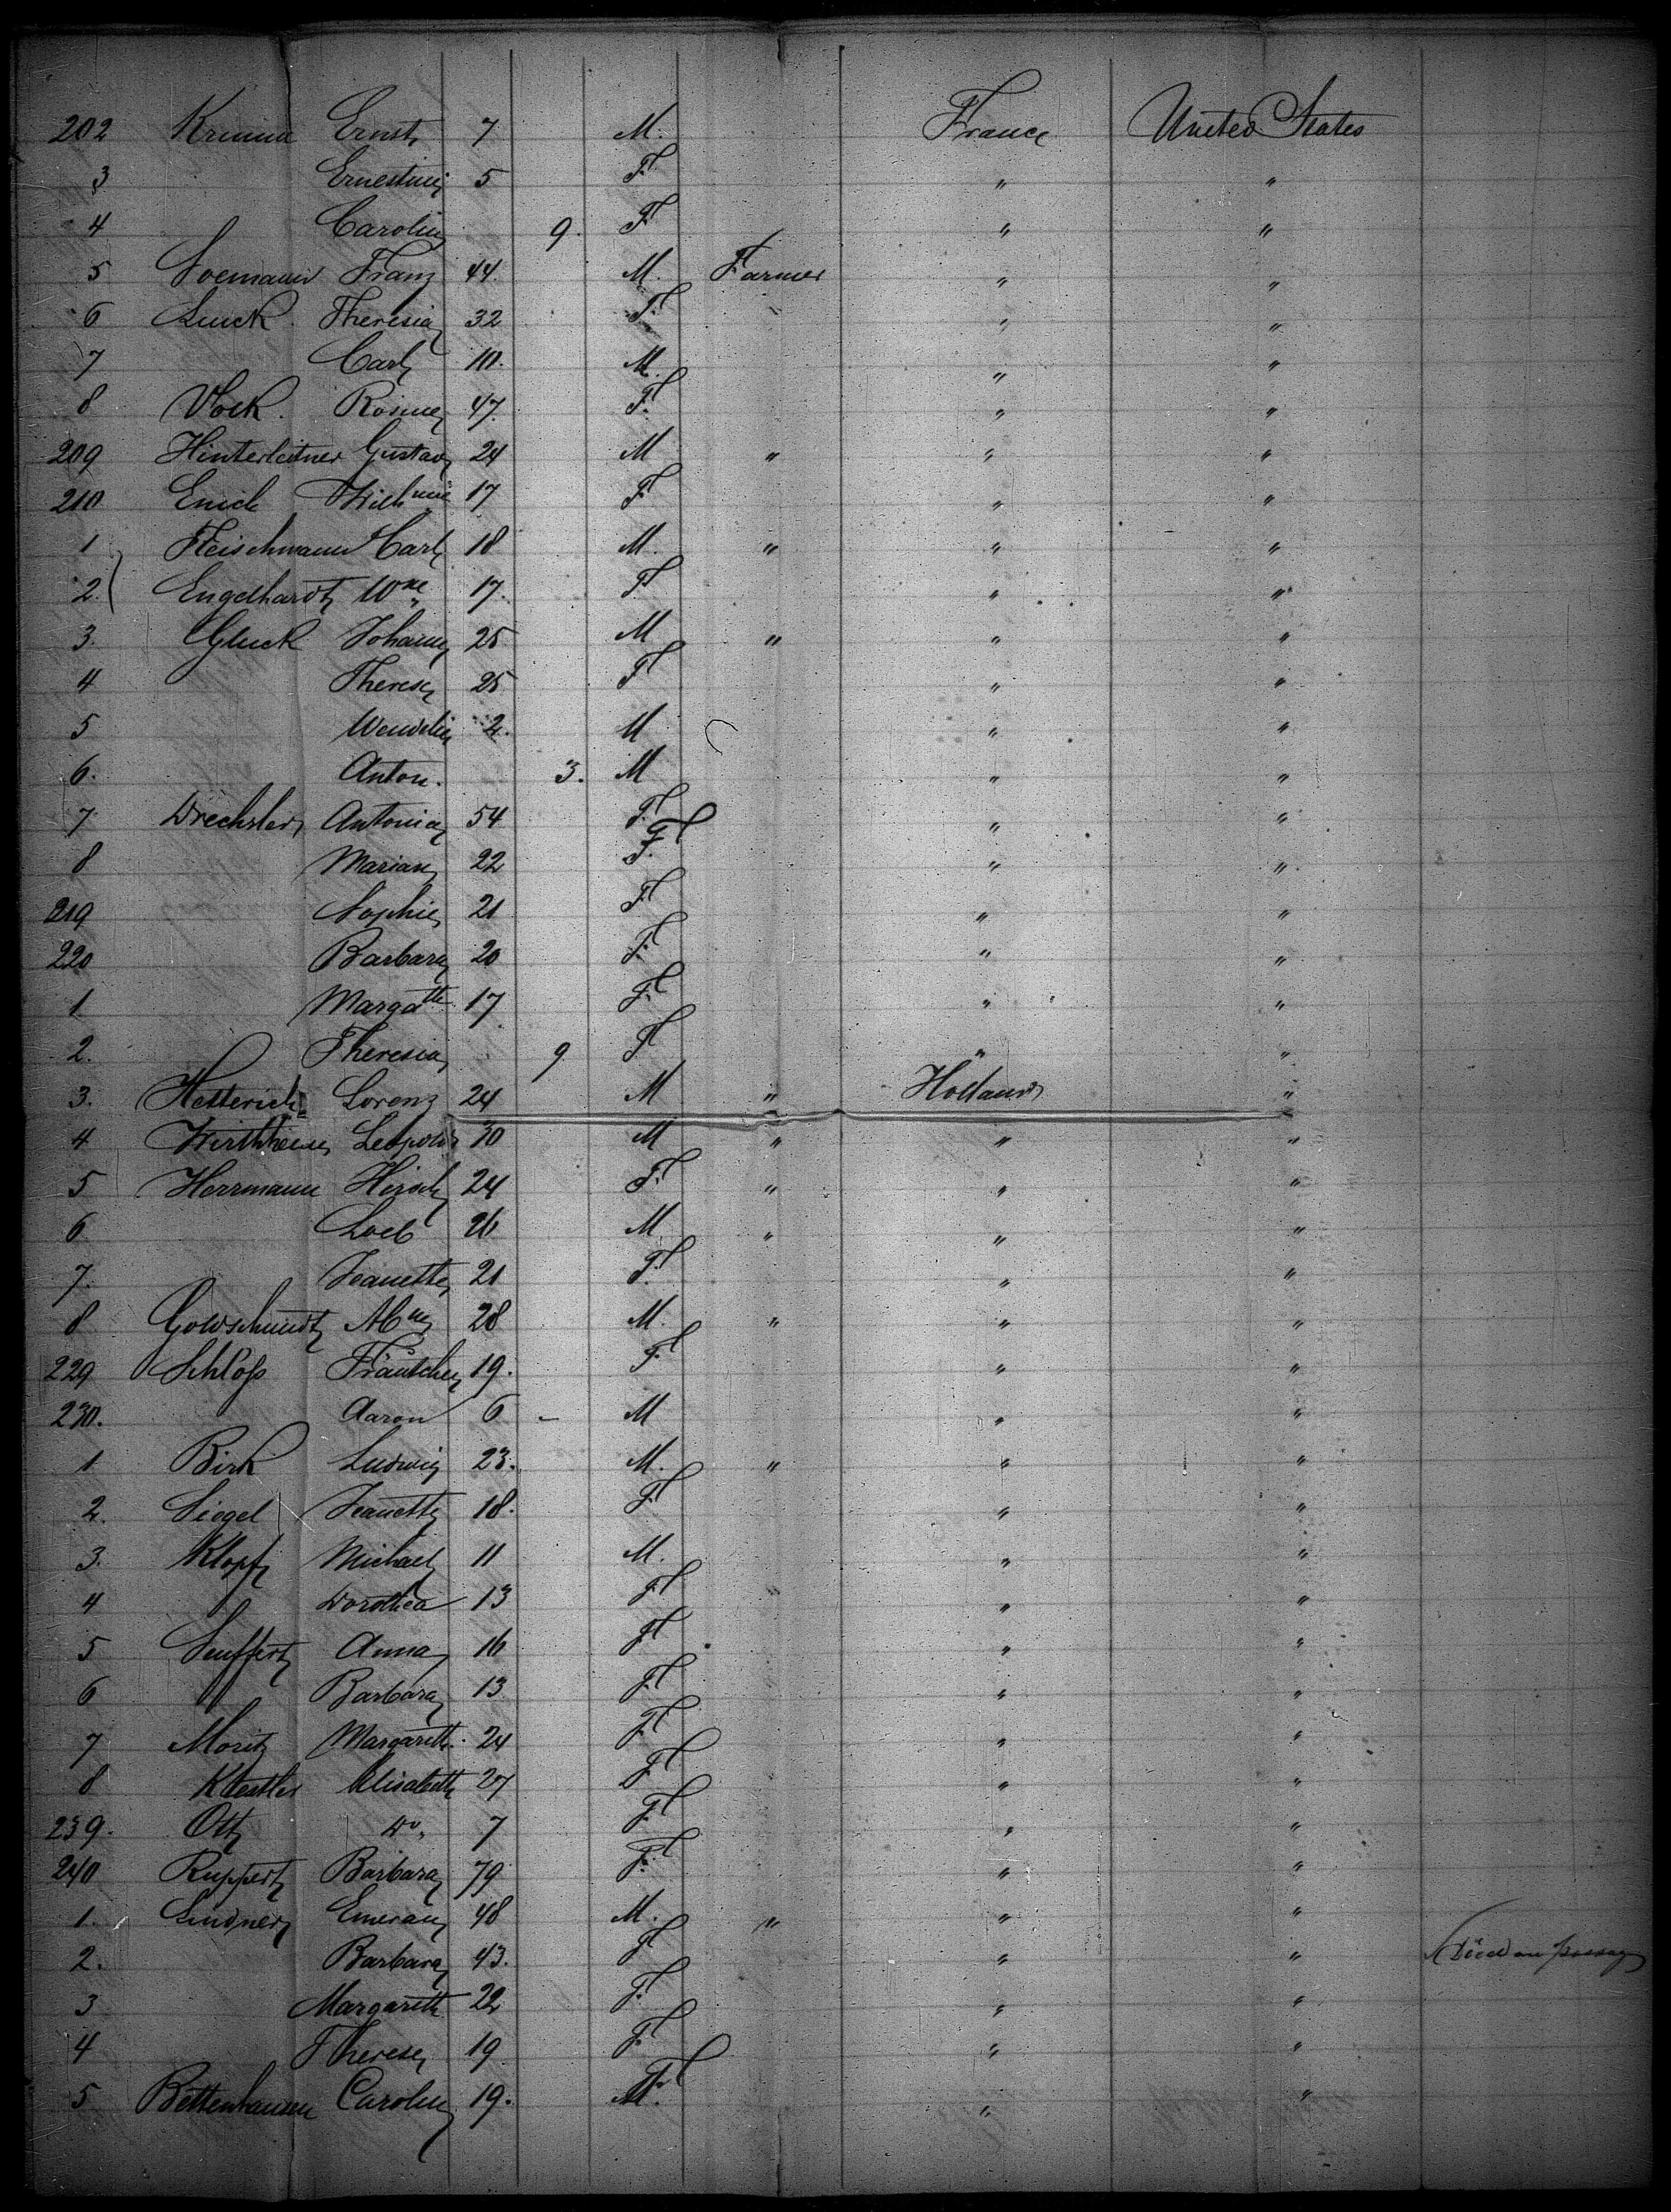 202 Ernst 7 M. France United States
3 Ernestine 5 F. " "
4 Caroline 9. F " "
5 Franz 44. M. Farmer " "
6 Theresia 32 F. " "
7 Carl 10. M. " "
8 Vock. Rosine 47. F. " "
209 Hinterleitner Gustav 24 M " " "
210 17 F " "
1 Fleischmann Carl 18 M. " " "
2. Engelhardt 17. F " "
3. Gluck Johann 25 M " " "
4 Therese 25 F " "
5 Wendelin 2. M " "
6. Anton. 3. M " "
7 Drechsler Antonia 54 F. " "
8 Marian 22 F. " "
219 Sophie 21 F " "
220 Barbara 20 F. " "
1 Margath 17 F. " "
2. Theresia 9 F " "
3. Hetterich Lorenz 24 M " Holland "
4 Leopold 30 M " " "
5 Herrmann Hirsch 24 F. " " "
6 Loeb 26 M " " "
7. Jeanette 21 F. " "
8 Goldschmidt 28 M. " " "
229 Schloß 19. F. " "
230. Aaron 6 - M " "
1 Birk Ludwig 23. M. " " "
2. Siegel Jeanette 18. F " "
3. Klopf Michael 11 M. " "
4 Dorothea 13 F " "
5 Seuffert Anna 16 F " "
6 Barbara 13 F. " "
7 Moritz Margareth. 24 F " "
8 Elisabeth 27 F " "
239. Ott do. 7 F " "
240 Ruppert Barbara 79 F. " "
1. Lindner 48 M. " " "
2. Barbara 43. F " " Died on passage
3 Margareth 22 F. " "
4 Therese 19 F " "
5 Bettenhausen Caroline 19. F " "